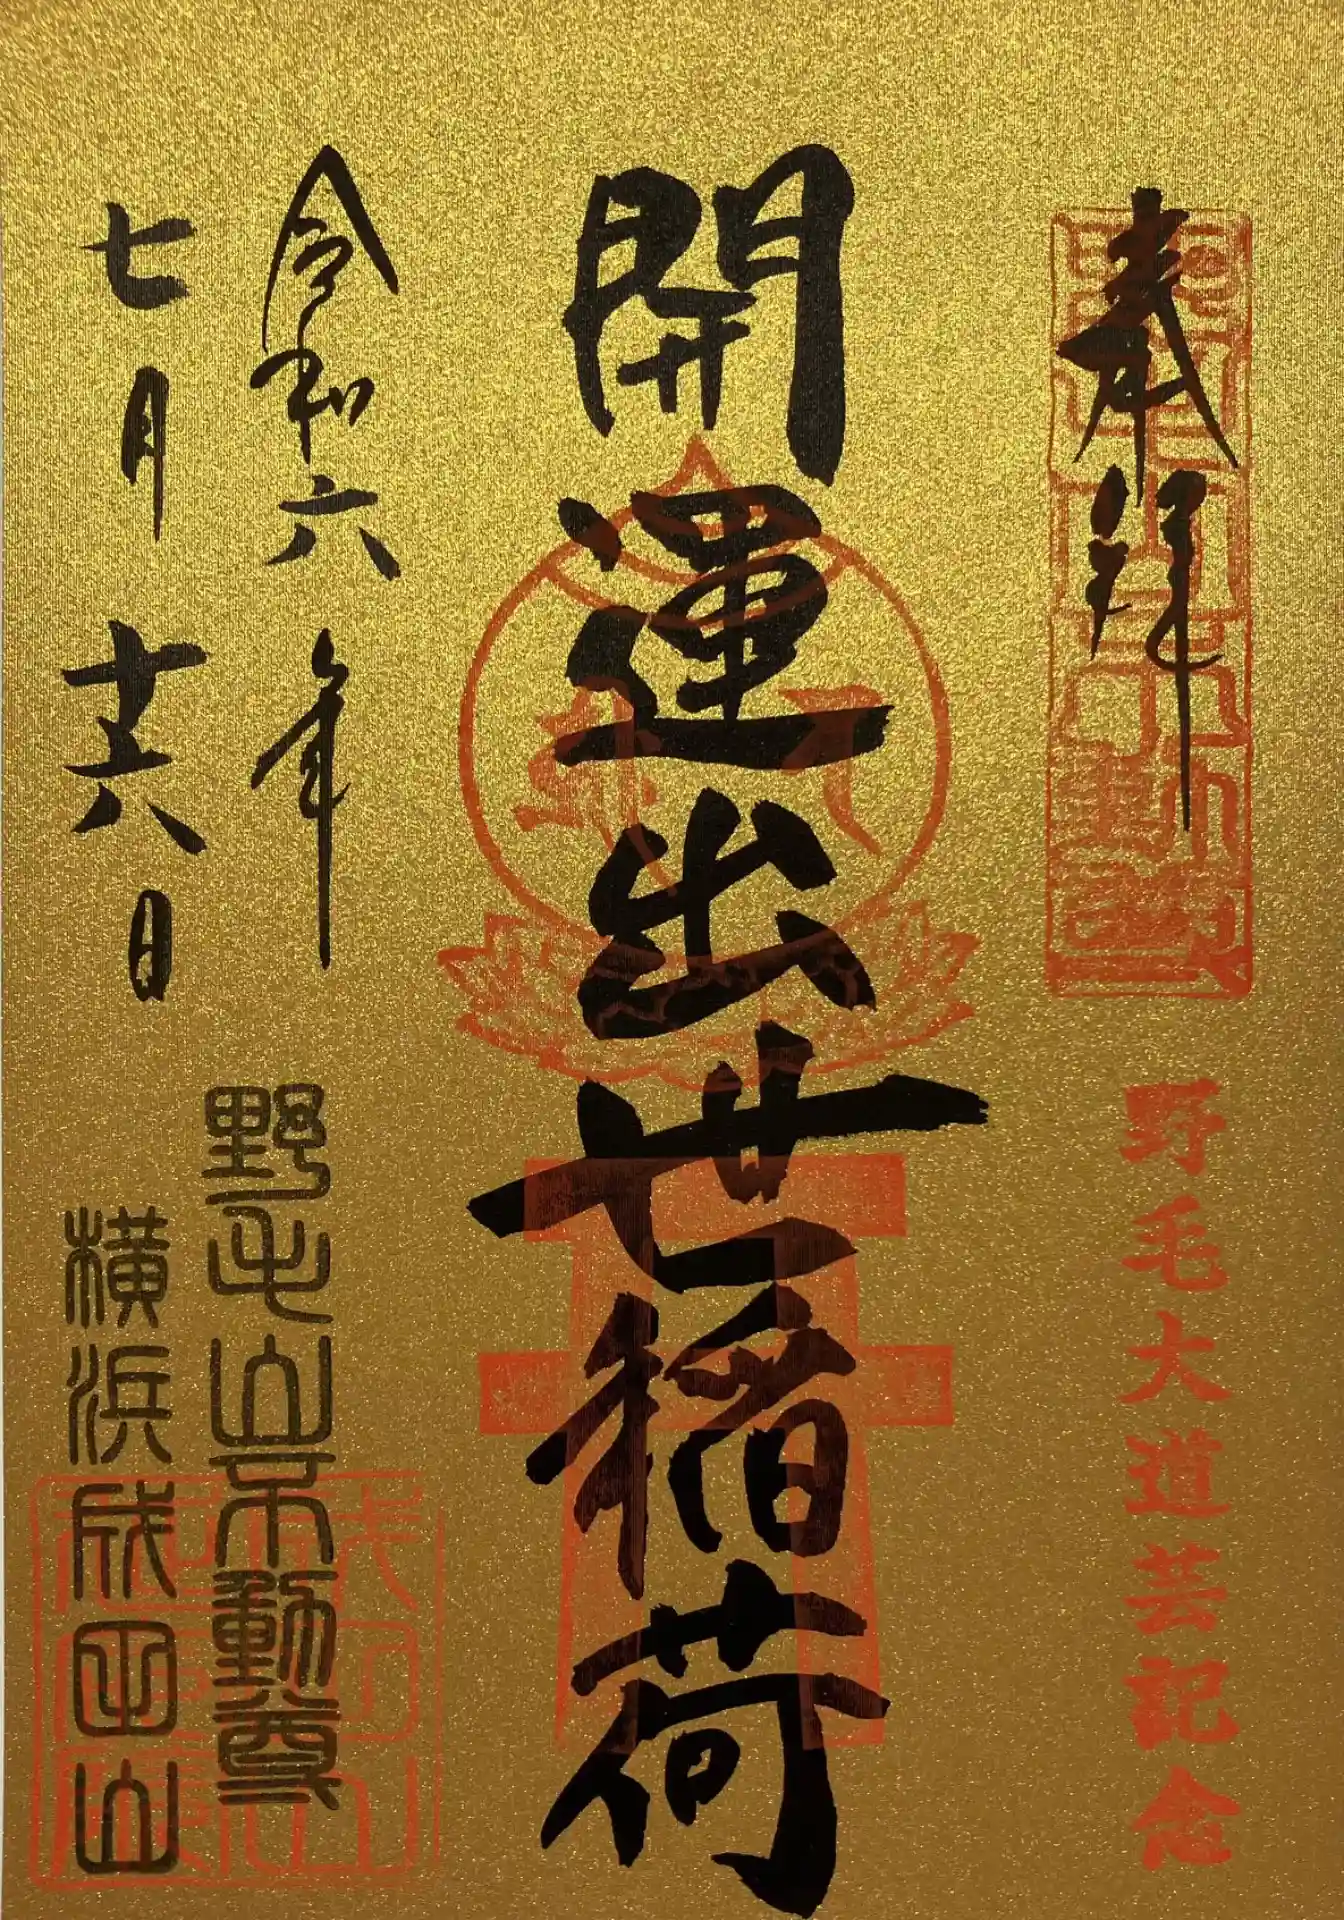 奉拝
野毛大道芸記念
開運出世稲荷
令和六年
七月十六日
野毛山不動尊
横浜成田山